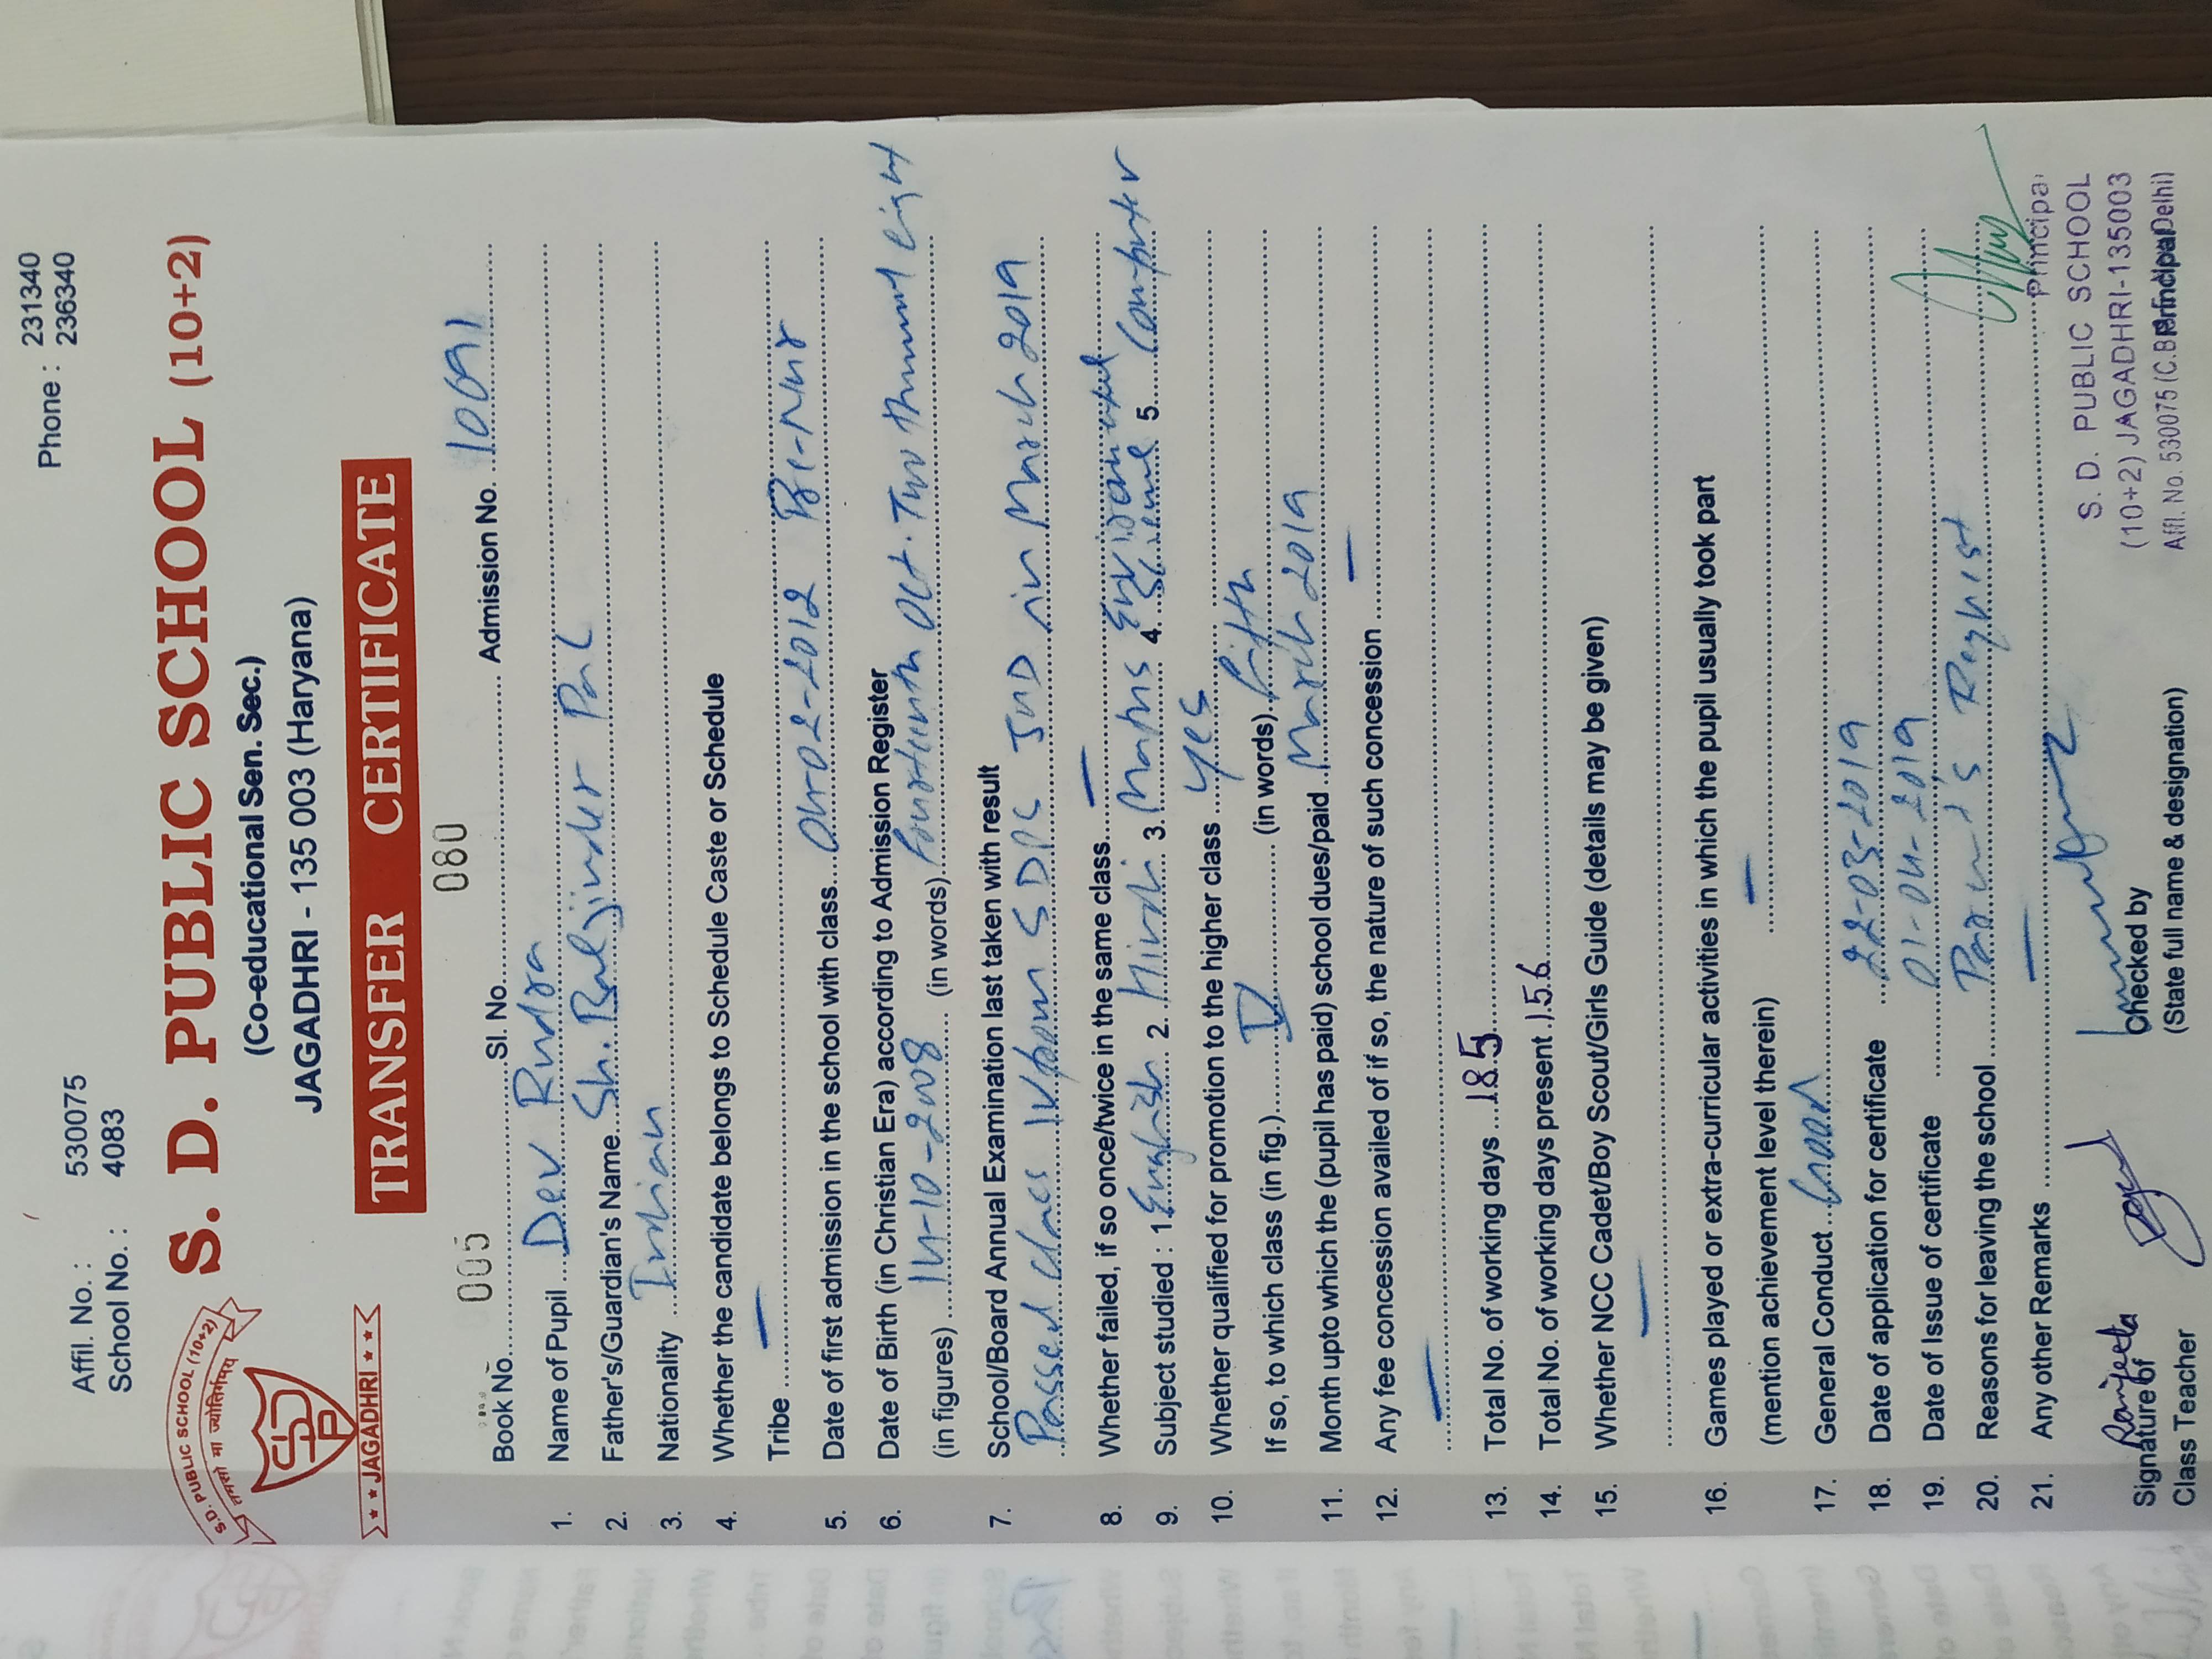 Affil. No. : 530075 Phone : 231340
School No. : 4083 236340
S.D. PUBLIC SCHOOL (10+2)
तमसो मा ज्योतिर्गमय
SDP
★ ★ JAGADHRI ★ ★
S. D. PUBLIC SCHOOL (10+2)
(Co-educational Sen. Sec.)
JAGADHRI - 135 003 (Haryana)
TRANSFER CERTIFICATE
Book No. 005 Sl. No. 080 Admission No. 10091
1. Name of Pupil Dev Rudra
2. Father's/Guardian's Name Sh. Baljinder Pal
3. Nationality Indian
4. Whether the candidate belongs to Schedule Caste or Schedule
Tribe —
5. Date of first admission in the school with class 04-02-2012 Pre-Nur
6. Date of Birth (in Christian Era) according to Admission Register
(in figures) 14-10-2008 (in words) Fourteenth Oct. Two thousand eight
7. School/Board Annual Examination last taken with result
Passed class IV from SDPS JUD in March 2019
8. Whether failed, if so once/twice in the same class —
9. Subject studied : 1. English 2. Hindi 3. Maths 4. Environmental Science 5. Computer
10. Whether qualified for promotion to the higher class Yes
If so, to which class (in fig.) V (in words) Fifth
11. Month upto which the (pupil has paid) school dues/paid March 2019
12. Any fee concession availed of if so, the nature of such concession —
—
13. Total No. of working days 185
14. Total No. of working days present 156
15. Whether NCC Cadet/Boy Scout/Girls Guide (details may be given)
—
16. Games played or extra-curricular activities in which the pupil usually took part
(mention achievement level therein) —
17. General Conduct Good
18. Date of application for certificate 22-03-2019
19. Date of Issue of certificate 01-04-2019
20. Reasons for leaving the school Parent's Request
21. Any other Remarks —
Ranjeeta
Signature of Checked by Principal
Class Teacher (State full name & designation) Principal
S. D. PUBLIC SCHOOL
(10+2) JAGADHRI-135003
Affl. No. 530075 (C.B.S.E. Delhi)